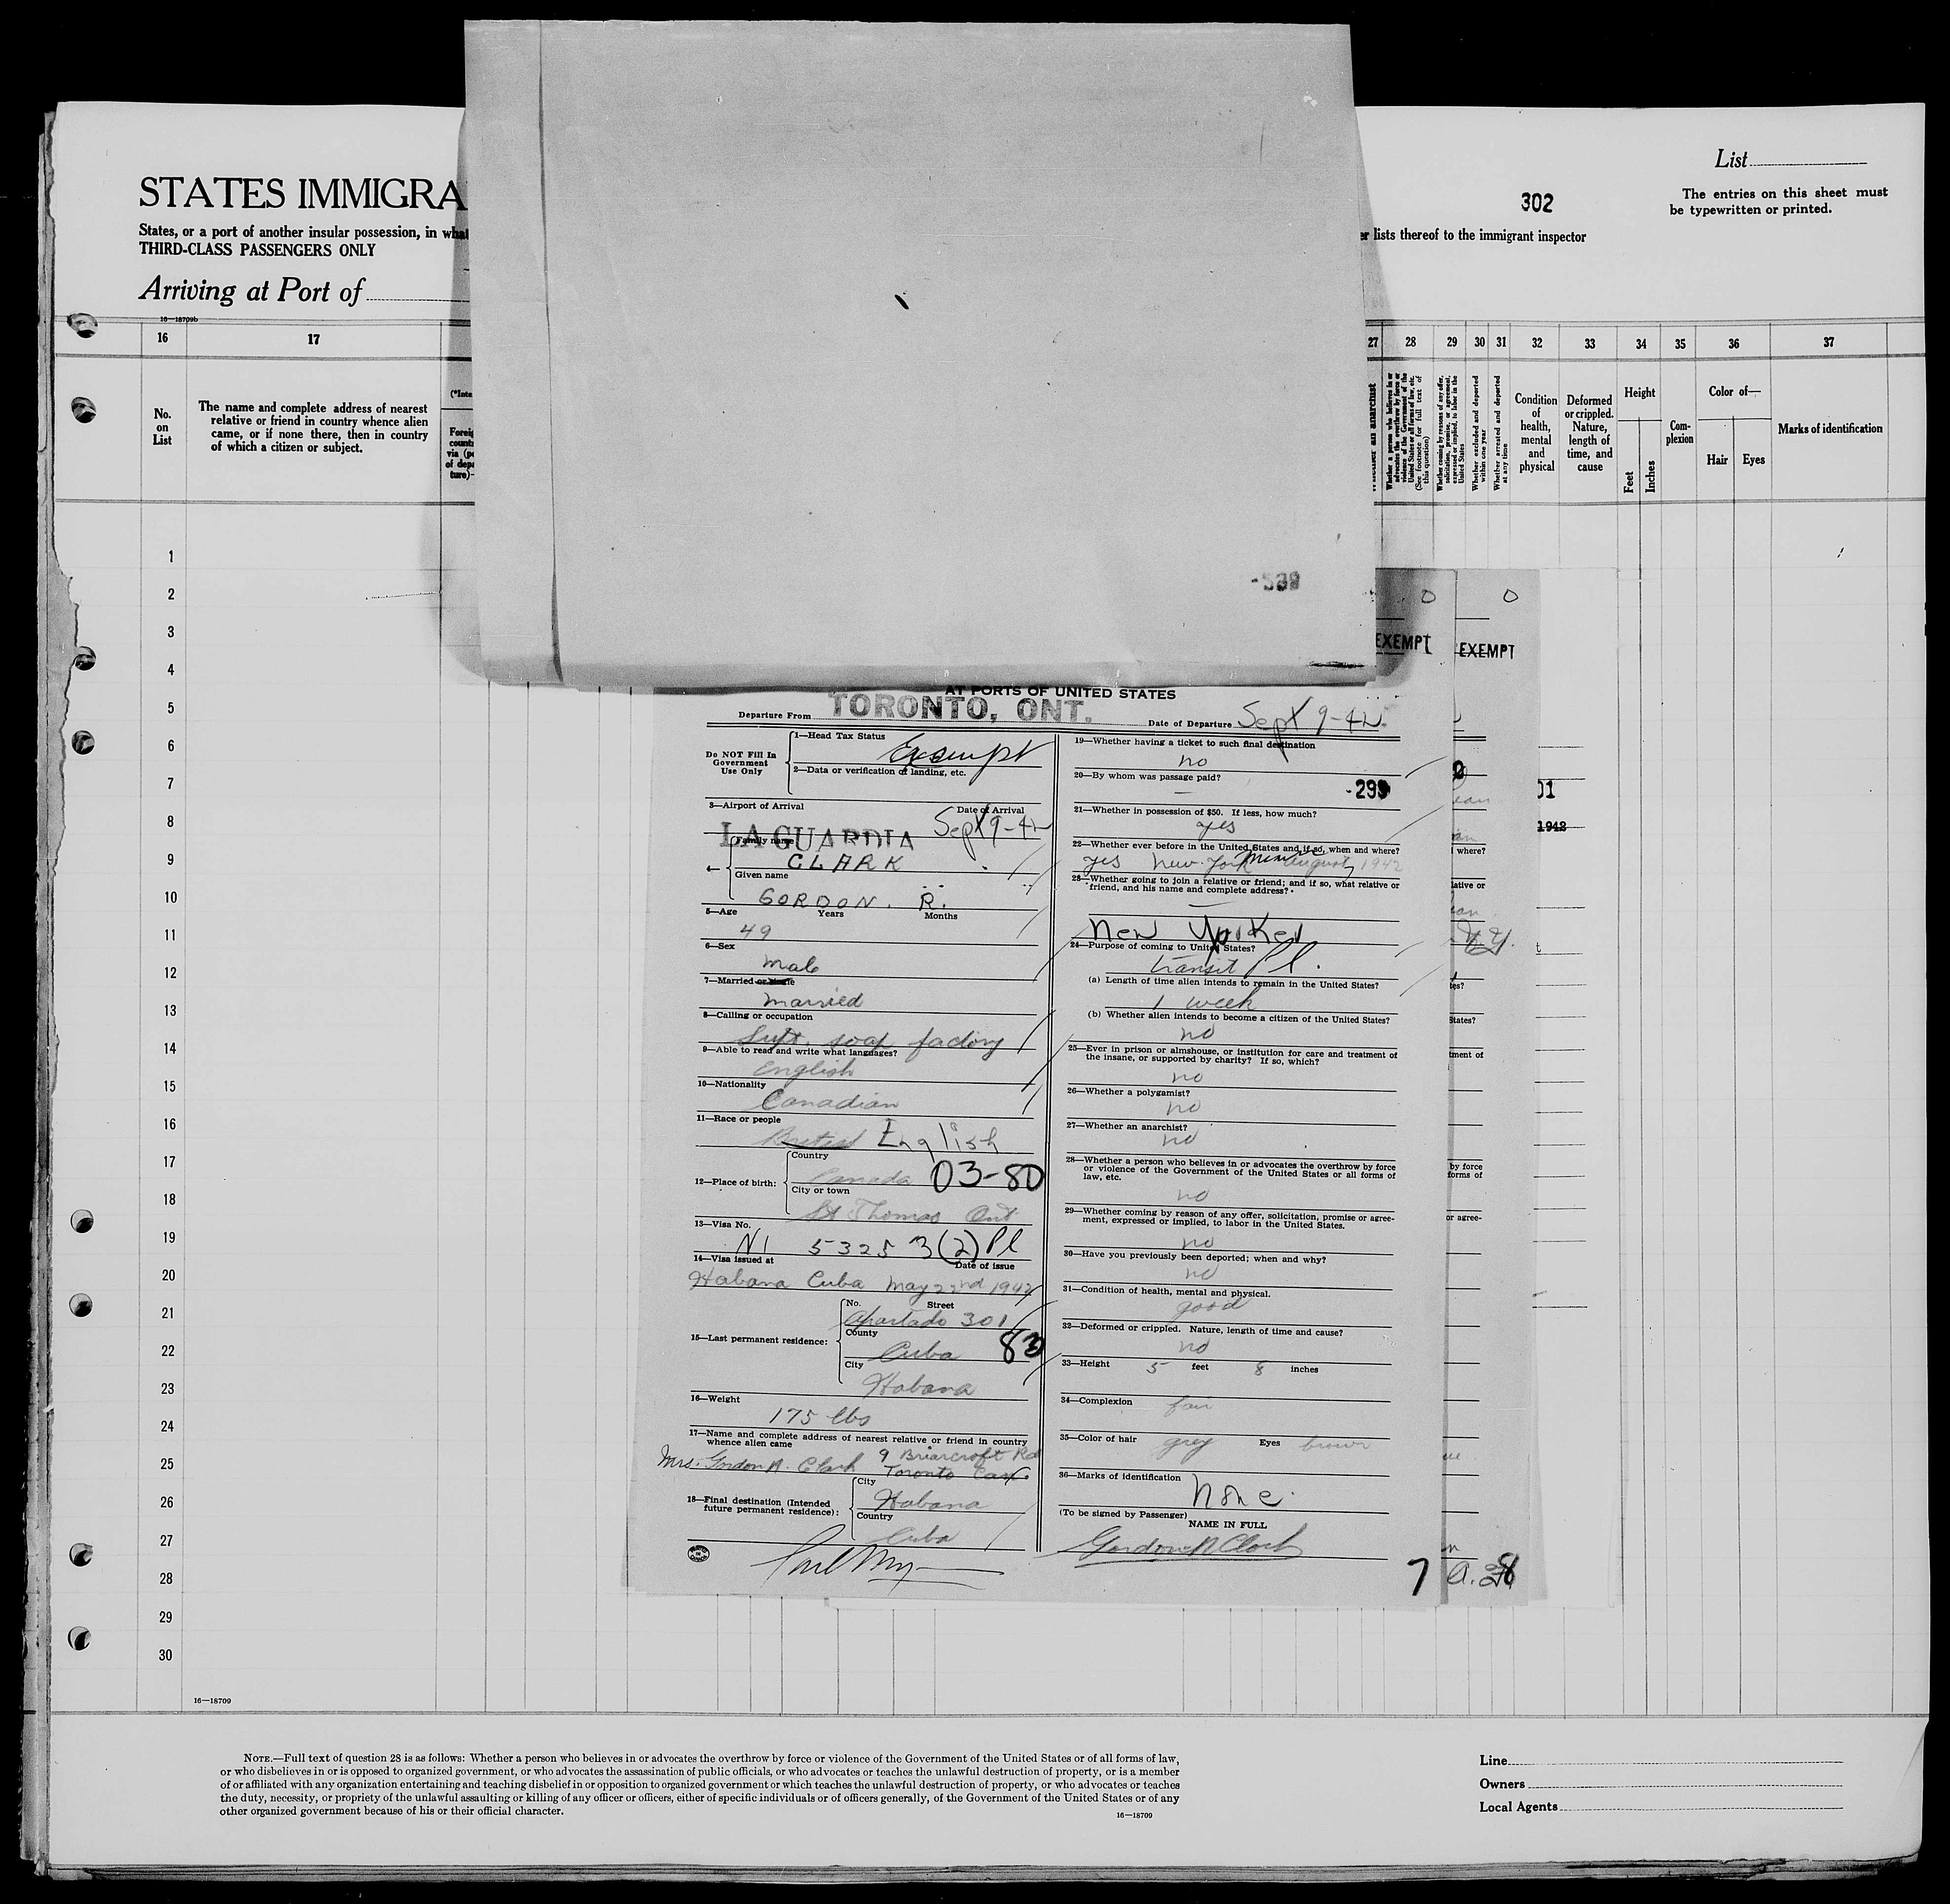 List
STATES IMMIGRA
302
The entries on this sheet must
be typewritten or printed.
States, or a port of another insular possession, in what
er lists thereof to the immigrant inspector
THIRD-CLASS PASSENGERS ONLY
Arriving at Port of
16—18709b
16 17 27 28 29 30 31 32 33 34 35 36 37
No.
on
List
The name and complete address of nearest
relative or friend in country whence alien
came, or if none there, then in country
of which a citizen or subject.
(*Inte
Foreig
countr
via (po
of depa
ture)—
Whether an anarchist
Whether a person who believes in or
advocates the overthrow by force or
violence of the Government of the
United States or all forms of law, etc.
(See footnote for full text of
this question)
Whether coming by reasons of any offer,
solicitation, promise, or agreement,
expressed or implied, to labor in the
United States
Whether excluded and deported
within one year
Whether arrested and deported
at any time
Condition
of
health,
mental
and
physical
Deformed
or crippled.
Nature,
length of
time, and
cause
Height
Feet
Inches
Com-
plexion
Color of—
Hair Eyes
Marks of identification
1
2
3
4
5
6
7
8
9
10
11
12
13
14
15
16
17
18
19
20
21
22
23
24
25
26
27
28
29
30
EXEMPT
EXEMPT
AT PORTS OF UNITED STATES
Departure From TORONTO, ONT. Date of Departure Sept 9-42
Do NOT Fill In
Government
Use Only
1—Head Tax Status
Exempt
2—Data or verification of landing, etc.
3—Airport of Arrival Date of Arrival
LA GUARDIA Sept 9-42
4— Family name
CLARK
Given name
GORDON. R.
5—Age Years Months
49
6—Sex
male
7—Married or single
married
8—Calling or occupation
Supt. soap factory
9—Able to read and write what languages?
English
10—Nationality
Canadian
11—Race or people
British English
12—Place of birth: Country
Canada 03-80
City or town
St Thomas Ont
13—Visa No.
NI 5325 3(2) Pl
14—Visa issued at Date of issue
Habana Cuba May 22nd 1942
15—Last permanent residence: No. Street
Apartado 301
County
Cuba 83
City
Habana
16—Weight
175 lbs
17—Name and complete address of nearest relative or friend in country
whence alien came
Mrs. Gordon R. Clark 9 Briarcroft Rd
Toronto Can.
18—Final destination (Intended
future permanent residence): City
Habana
Country
Cuba
19—Whether having a ticket to such final destination
no
20—By whom was passage paid?
—
-299
21—Whether in possession of $50. If less, how much?
yes
22—Whether ever before in the United States and if so, when and where?
yes New York August, 1942
23—Whether going to join a relative or friend; and if so, what relative or
friend, and his name and complete address?
—
New Yorker
24—Purpose of coming to United States?
transit Pl.
(a) Length of time alien intends to remain in the United States?
1 week
(b) Whether alien intends to become a citizen of the United States?
no
25—Ever in prison or almshouse, or institution for care and treatment of
the insane, or supported by charity? If so, which?
no
26—Whether a polygamist?
no
27—Whether an anarchist?
no
28—Whether a person who believes in or advocates the overthrow by force
or violence of the Government of the United States or all forms of
law, etc.
no
29—Whether coming by reason of any offer, solicitation, promise or agree-
ment, expressed or implied, to labor in the United States.
no
30—Have you previously been deported; when and why?
no
31—Condition of health, mental and physical.
good
32—Deformed or crippled. Nature, length of time and cause?
no
33—Height 5 feet 8 inches
34—Complexion fair
35—Color of hair grey Eyes brown
36—Marks of identification
none.
(To be signed by Passenger)
NAME IN FULL
Gordon R Clark
7
01
1942
where?
lative or
N.Y.
es?
States?
tment of
by force
forms of
or agree-
16—18709
NOTE.—Full text of question 28 is as follows: Whether a person who believes in or advocates the overthrow by force or violence of the Government of the United States or of all forms of law,
or who disbelieves in or is opposed to organized government, or who advocates the assassination of public officials, or who advocates or teaches the unlawful destruction of property, or is a member
of or affiliated with any organization entertaining and teaching disbelief in or opposition to organized government or which teaches the unlawful destruction of property, or who advocates or teaches
the duty, necessity, or propriety of the unlawful assaulting or killing of any officer or officers, either of specific individuals or of officers generally, of the Government of the United States or of any
other organized government because of his or their official character.
16—18709
Line
Owners
Local Agents